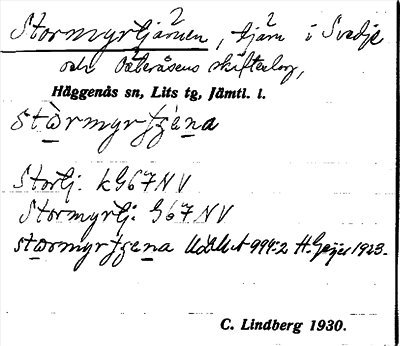 Stormyrtjärnen, tjärn i Svedje
och Österåsens skifteslag,
Häggenås sn, Lits tg, Jämtl. l.
stωrmyrtjæna
Stortj. kG67NV
Stormyrtj. G67NV
stωrmyrtjæna ULMA 994:2 H. Geijer 1923.
C. Lindberg 1930.